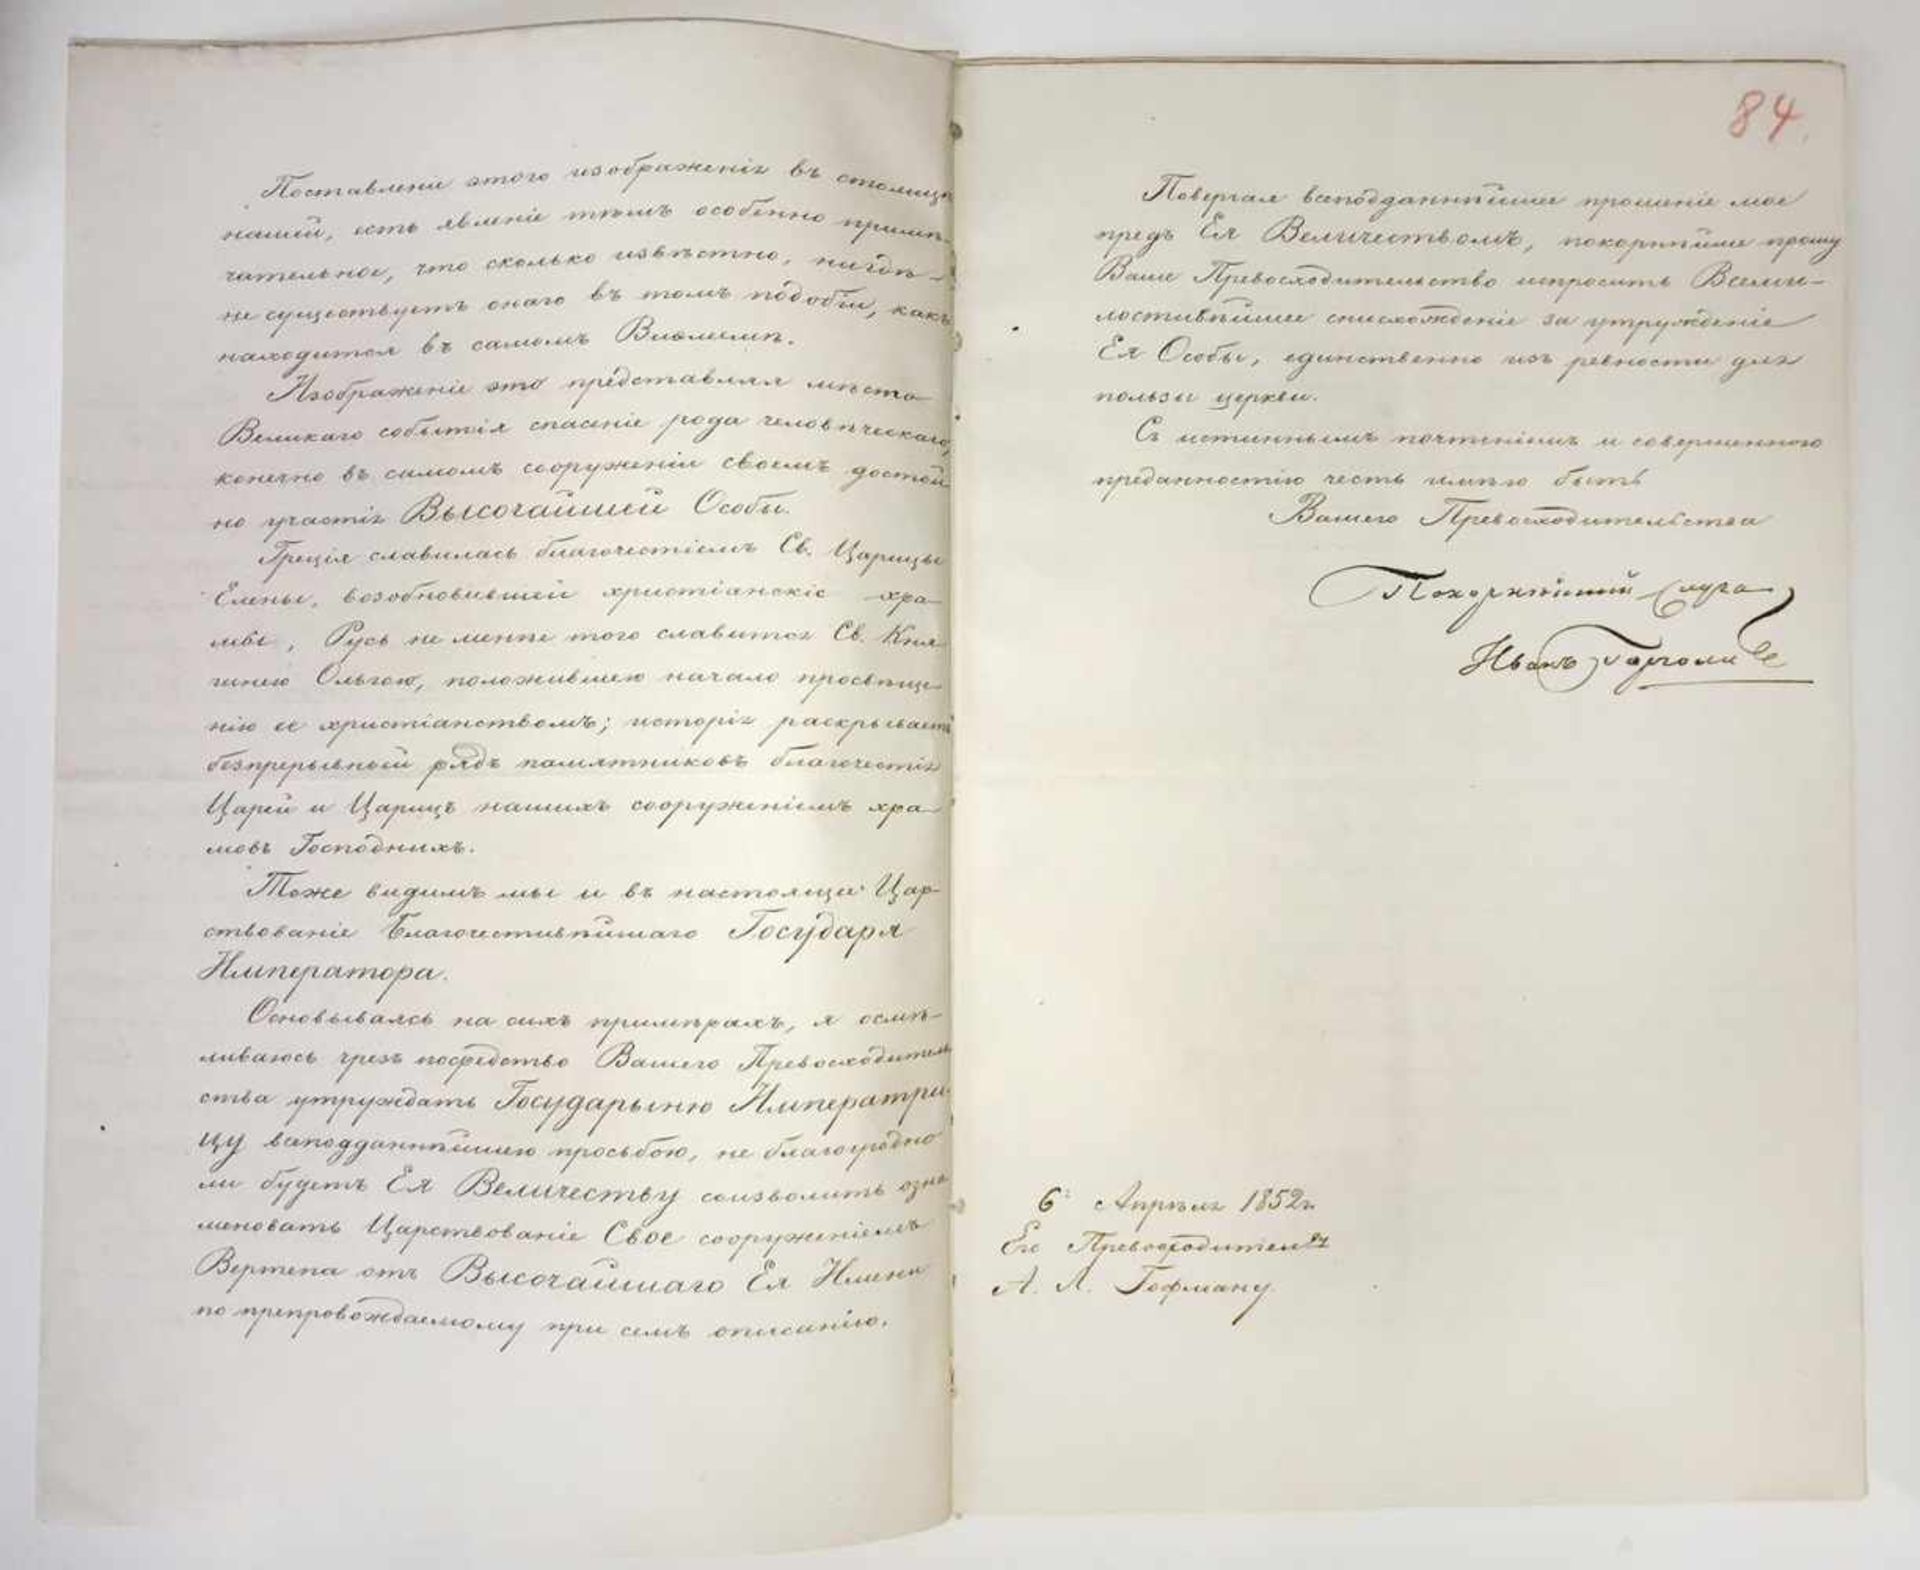 Поставленіе этого изображенія въ столицѣ
нашей, есть явленіе тѣмъ особенно примѣ-
чательное, что сколько извѣстно, нигдѣ
не существуетъ онаго въ томъ подобіи, какъ
находится въ самомъ Виѳлеемѣ.
Изображеніе это представляя мѣсто
Великаго событія спасенія рода человѣческаго,
конечно въ самомъ сооруженіи своемъ достой
но участія Высочайшей Особы.
Греція славилась благочестіемъ Св. Царицы
Елены, возобновившей христіанскіе хра
мы, Русь не менѣе того славится Св. Кня
гинею Ольгою, положившею начало просвѣще
нію ее христіанствомъ; исторія раскрываетъ
безпрерывный рядъ памятниковъ благочестія
Царей и Царицъ нашихъ сооруженіемъ хра
мовъ Господнихъ.
Тоже видимъ мы и въ настояще Цар
ствованіе Благочестивѣйшаго Государя
Императора.
Основываясь на сихъ примѣрахъ, я осмѣ-
ливаюсь чрезъ посредство Вашего Превосходитель
ства утруждать Государыню Императри-
цу всеподданнѣйшею просьбою, не благоугодно
ли будетъ Ея Величеству соизволить озна
меновать Царствованіе Свое сооруженіемъ
Вертепа отъ Высочайшаго Ея Имени
по препровождаемому при семъ описанію.
84.
Повергая всеподданнѣйшее прошеніе мое
предъ Ея Величествомъ, покорнѣйше прошу
Ваше Превосходительство испросить Всеми-
лостивѣйшее снисхожденіе за утружденіе
Ея Особы, единственно изъ ревности для
пользы церкви.
Съ истиннымъ почтеніемъ и совершенною
преданностію честь имѣю быть
Вашего Превосходительства
Покорнѣйшій Слуга
Иванъ Гарголи
6 Апрѣля 1852 г.
Его Превосходительству
А. Л. Гофману